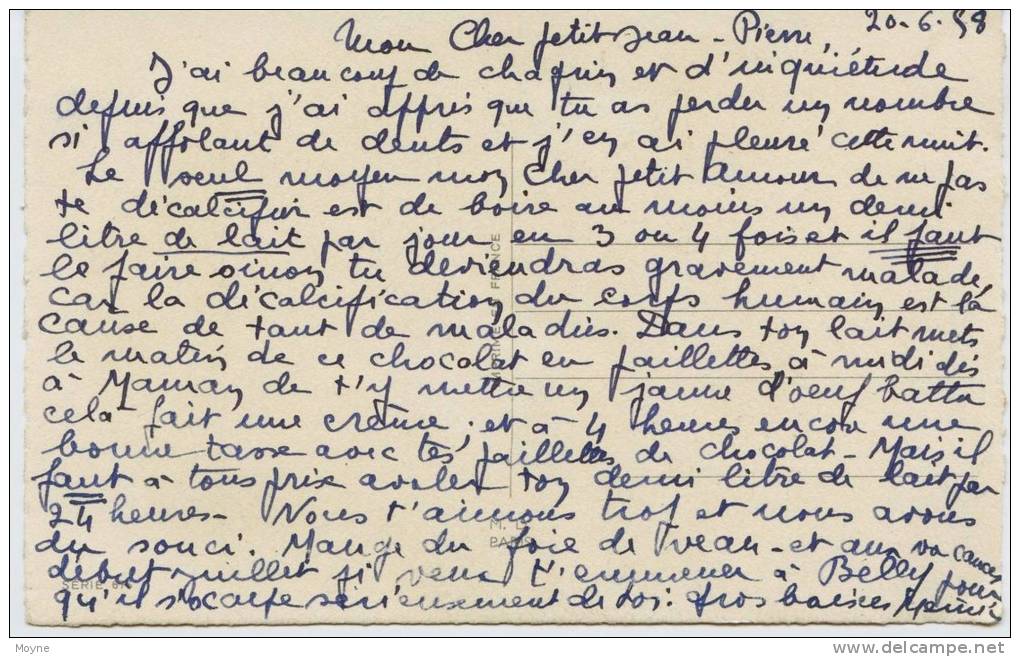 20-6-58
Mon Cher petit Jean-Pierre,
J'ai beaucoup de chagrin et d'inquiétude
depuis que j'ai appris que tu as perdu un nombre
si affolant de dents et j'en ai pleuré cette nuit.
Le seul moyen mon Cher petit Amour de ne pas
te décalcifier est de boire au moins un demi
litre de lait par jour en 3 ou 4 fois et il faut
le faire sinon tu deviendras gravement malade,
car la décalcification du corps humain est la
cause de tant de maladies. Dans ton lait mets
le matin de ce chocolat en paillettes, à midi dis
à Maman de t'y mettre un jaune d'oeuf battu
cela fait une crème, et à 4 heures encore une
bonne tasse avec tes paillettes de chocolat - Mais il
faut à tous prix avaler ton demi litre de lait par
24 heures - Nous t'aimons trop et nous avons
du souci. Mange du foie de veau - et aux vacances
début juillet je viens t'emmener à Belly pour
qu'il s'occupe sérieusement de toi. Gros baisers
IMPRIMÉ EN FRANCE
M. D.
PARIS
SERIE
Moyne
delcampe.net